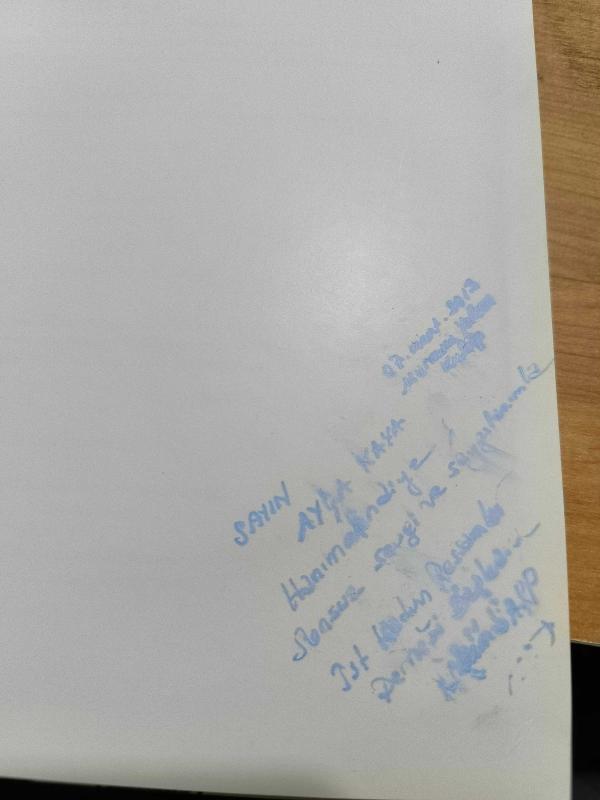 07. Mart. 2013
SAYIN
AYÇA KAYA
Hanımefendiye
Sonsuz sevgi ve saygılarımla
İst Kadın Ressamlar
Derneği Başkanı